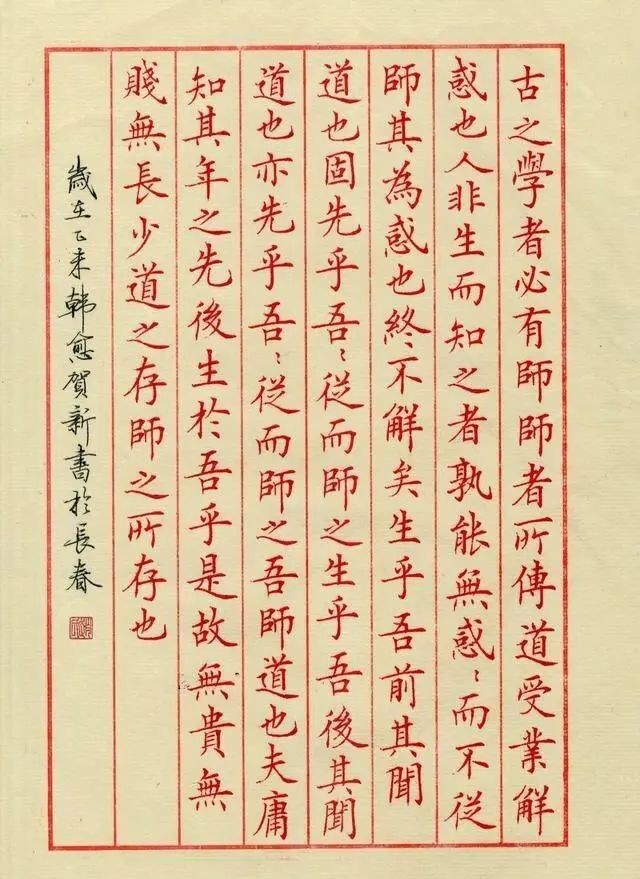 古之學者必有師師者所傳道受業解
惑也人非生而知之者孰能無惑〻而不從
師其為惑也終不解矣生乎吾前其聞
道也固先乎吾〻從而師之生乎吾後其聞
道也亦先乎吾〻從而師之吾師道也夫庸
知其年之先後生於吾乎是故無貴無
賤無長少道之存師之所存也
歲在乙未韩愈賀新書於長春